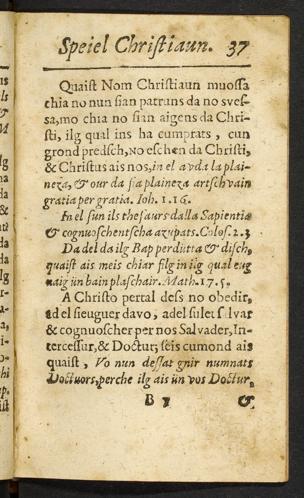 Speiel Christiaun. 37
Quaist Nom Christiaun muossa
chia no nun sian patruns da no svess-
sa, mo chia no sian aigens da Chri-
sti, ilg qual ins ha cumprats, cun
grond predsch, No eschen da Christi,
& Christus ais nos, in el avda la plai-
neza, & our da sia plaineza artschvain
gratia per gratia. Ioh. 1. 16.
In el sun ils thesaurs dalla Sapientia
& cognuoschentscha azupats. Colos. 2. 3
Da del da ilg Bap perdütta & disch,
quaist ais meis chiar filg in ilg qual eug
naig ün bain plaschair. Math. 17. 5.
A Christo pertal dess no obedir,
ad el sieuguer davo, ad el sulet salvar
& cognuoscher per nos Salvader, In-
tercessur, & Doctur; seis cumond ais
quaist, Vo nun dessat gnir numnats
Doctuors, perche ilg ais ün vos Doctur,
B 7 &